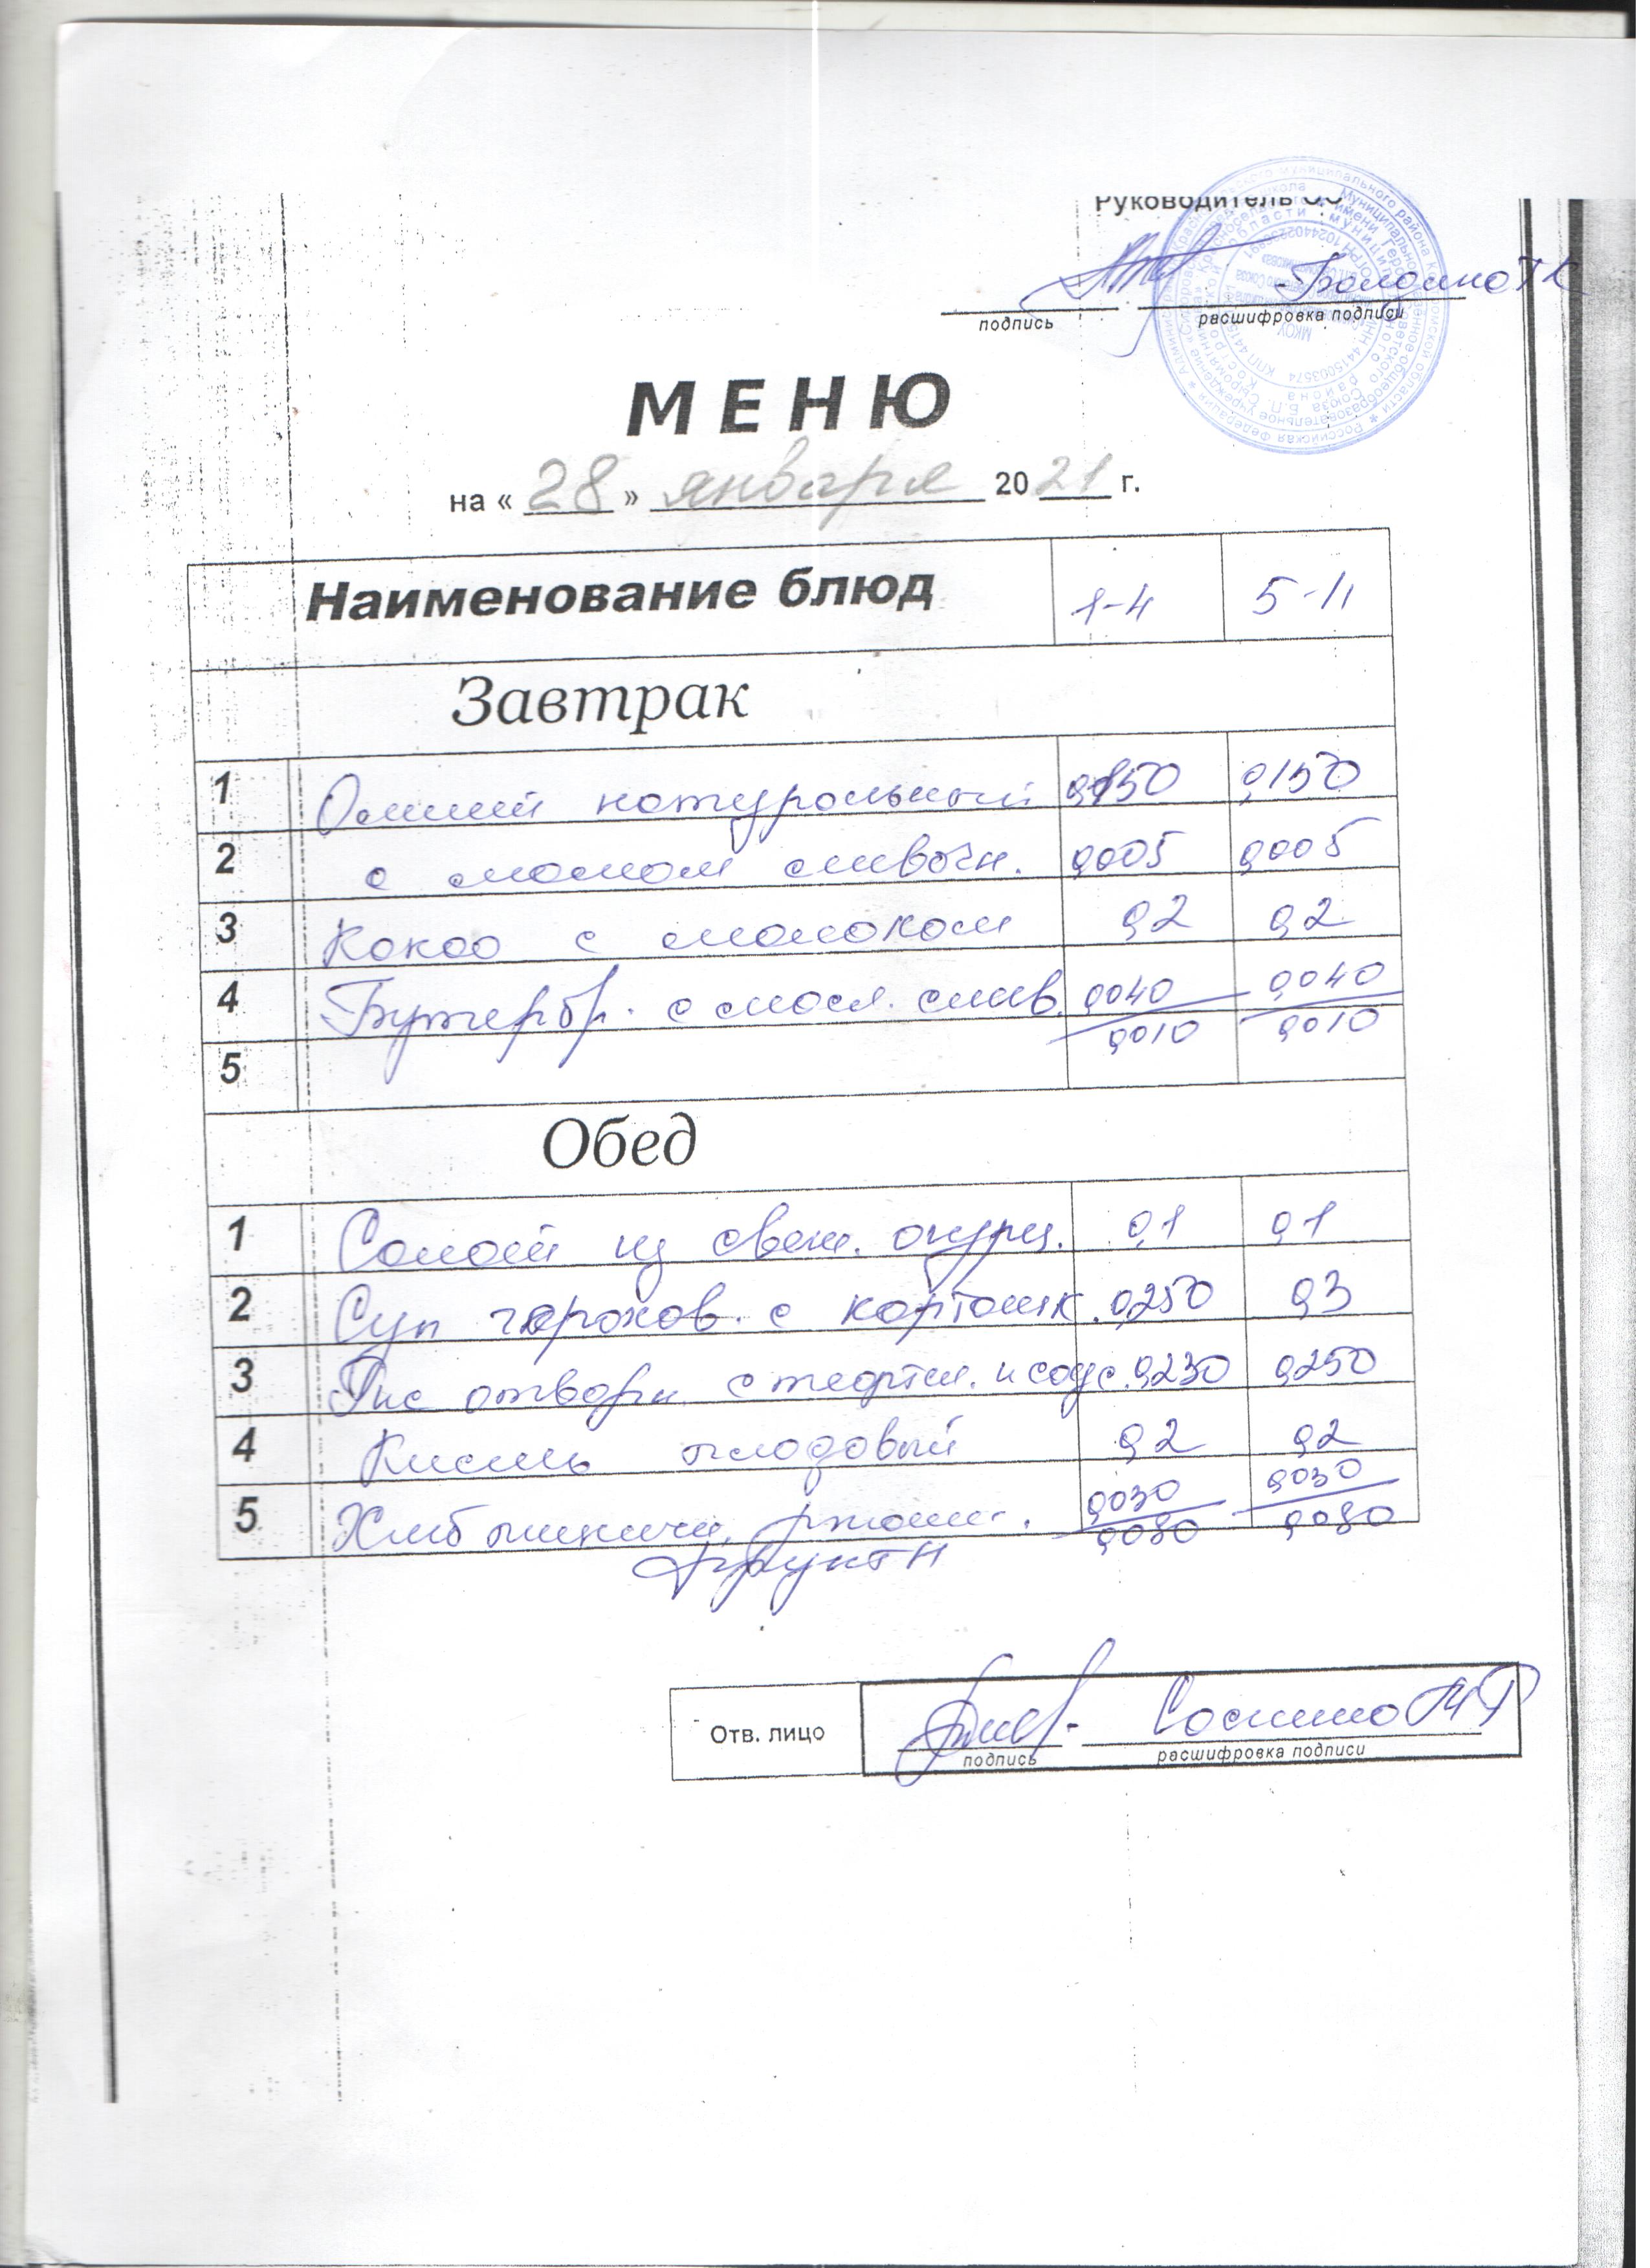 Руководитель ОО
Болдина Т К
подпись расшифровка подписи
МЕНЮ
на « 28 » января 20 21 г.
Наименование блюд 1-4 5-11
Завтрак
1 Омлет натуральный 0,150 0,150
2 с маслом сливочн. 0,005 0,005
3 Какао с молоком 0,2 0,2
4 Бутербр. с масл. слив. 0,040 0,040
5 0,010 0,010
Обед
1 Салат из свеж. огурц. 0,1 0,1
2 Суп горохов. с картошк. 0,250 0,3
3 Рис отварн. с тефтел. и соус. 0,230 0,250
4 Кисель плодовый 0,2 0,2
5 Хлеб пшенич, ржан. 0,030 0,030
0,080 0,080
фрукты
Отв. лицо
подпись расшифровка подписи